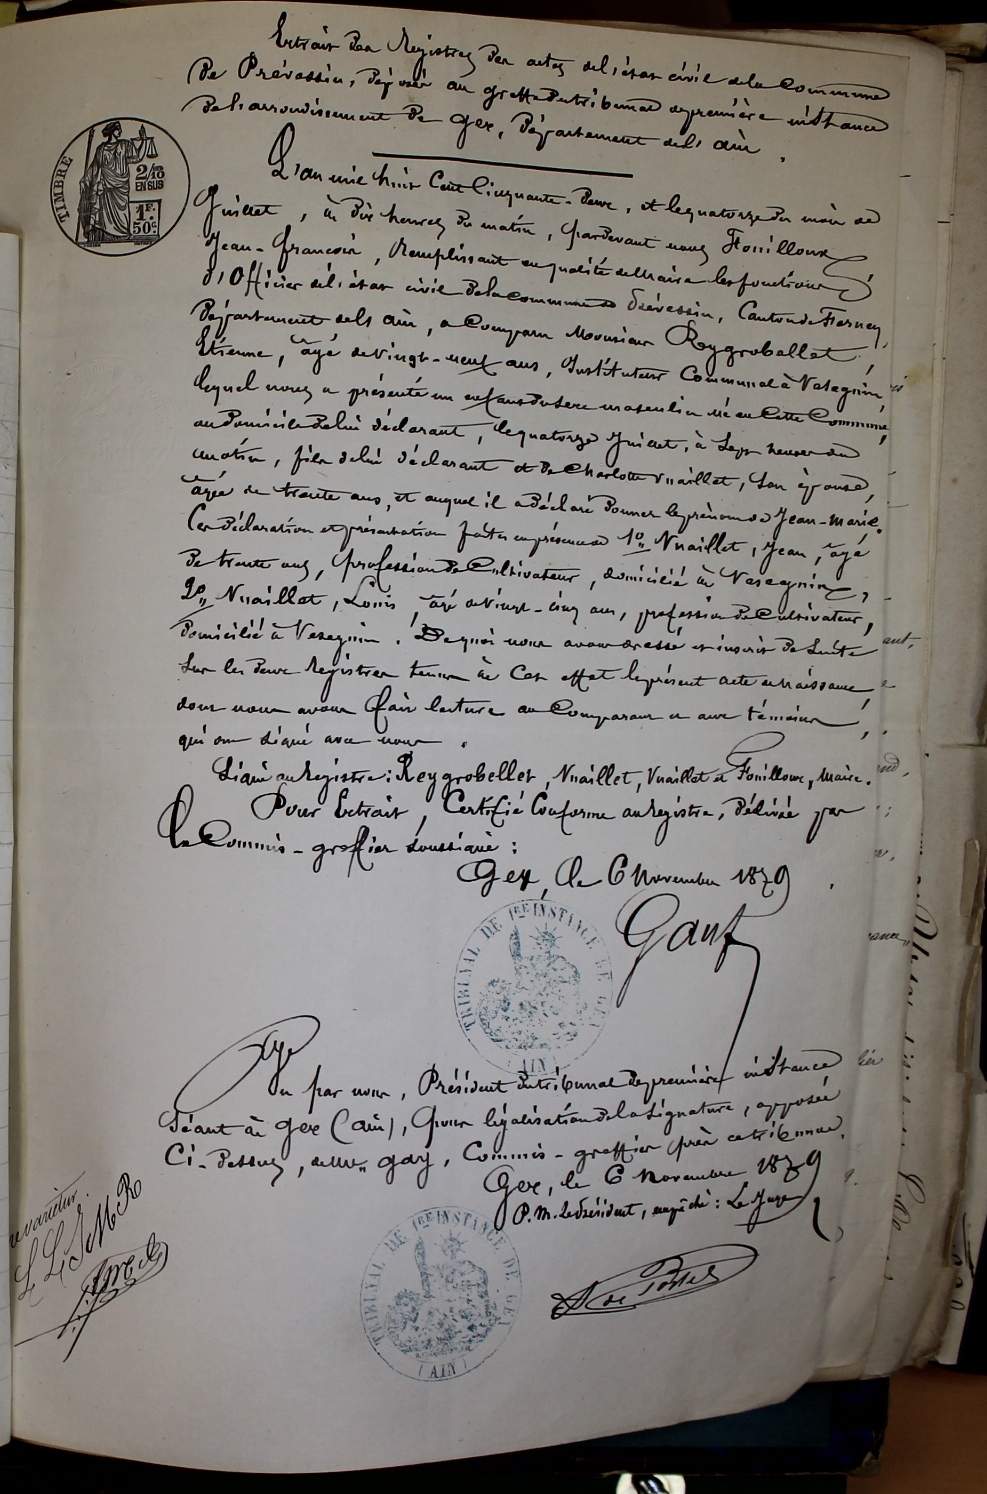 Extrait des Registres des actes de l'état civil de la Commune
de Prévessin, déposés au greffe du tribunal de première instance
de l'arrondissement de Gex, Département de l'ain.
TIMBRE
2/10
EN SUS
1F.
50c
L'an mil huit Cent Cinquante-deux, et le quatorze du mois de
Juillet, à dix heures du matin, pardevant nous Fouilloux
Jean-François, Remplissant en qualité de Maire les fonctions
d'Officier de l'état civil de la commune de Prévessin, Canton de Ferney
Département de l'ain, a Comparu Monsieur Reygrobellet,
Etienne, âgé de vingt-neuf ans, Instituteur Communal à Vesegnin,
lequel nous a présenté un enfant du sexe masculin né en cette Commune,
au domicile de lui déclarant, le quatorze Juillet, à Sept heures du
matin, fils de lui déclarant et de Charlotte Vuaillet, Son épouse,
âgée de trente ans, et auquel il a déclaré donner le prénom de Jean-Marie.
Ces déclaration et présentation faites en présence de 1° Vuaillet, Jean, âgé
de trente ans, profession de Cultivateur, domicilié à Vesegnin,
2° Vuaillet, Louis, âgé de Vingt-cinq ans, profession de Cultivateur,
domicilié à Vesegnin. De quoi nous avons dressé et inscrit de Suite
Sur les deux Registres tenus à cet effet le présent acte de naissance
dont nous avons fait lecture au Comparant et aux témoins,
qui ont Signé avec nous.
Signé au Registre: Reygrobellet, Vuaillet, Vuaillet et Fouilloux, Maire.
Pour Extrait, Certifié Conforme au Registre, Délivré par
Le Commis-greffier Soussigné:
Gex, le 6 Novembre 1879.
TRIBUNAL DE 1RE INSTANCE DE GEX
(AIN)
Vu par nous, Président du tribunal de première instance
Séant à Gex (ain), pour légalisation de la Signature, apposée
Ci-Dessus, de Mr Gay, Commis-greffier près ce tribunal.
Gex, le 6 Novembre 1879
P. M. Le Président, empêché: Le Juge
TRIBUNAL DE 1RE INSTANCE DE GEX
(AIN)